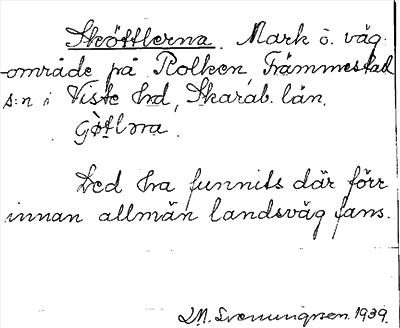 Sköttlerna. Mark ö. väg-
område på Rolken, Främmestad
s:n i Viste hrd, Skarab. län.
Led ha funnits där förr
innan allmän landsväg fans.
1939.